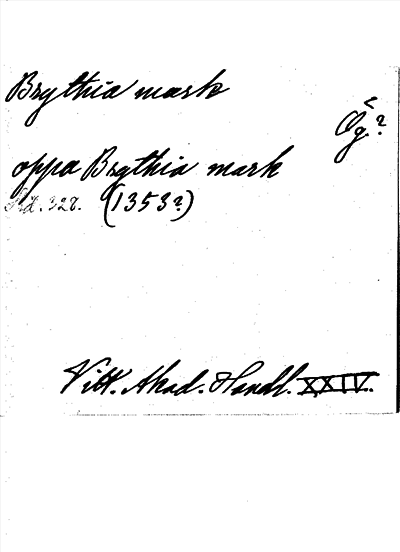 Brythia mark
Ög?
oppa Brythia mark
Sid. 328. (1353?)
Vitt. Akad. Handl. XXIV.